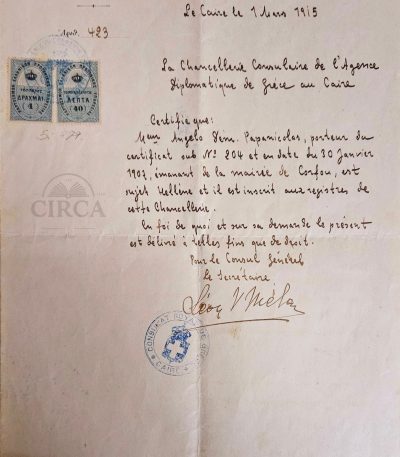 Le Caire le 1 Mars 1915
Αριθ. 423
La Chancellerie Consulaire de l'Agence
Diplomatique de Grèce au Caire
ΔΡΑΧΜΑΙ
1
ΛΕΠΤΑ
40
Certifie que:
Angelo Dem. Papanicolas, porteur du
certificat sub Nº 204 et en date du 30 Janvier
1907, émanant de la mairie de Corfou, est
sujet Hellène et il est inscrit aux registres de
cette Chancellerie.
En foi de quoi et sur sa demande le présent
est délivré à telles fins que de droit.
Pour le Consul Général
Le Secrétaire
CIRCA
CONSULAT ROYAL DE
CAIRE